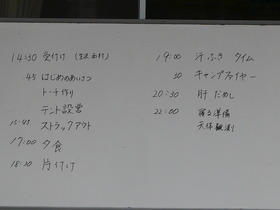 14:30 受付け
:45 はじめのあいさつ
トーチ作り
テント設営
15:45 ストラックアウト
17:00 夕食
18:30 片付け
19:00 汗ふき タイム
30 キャンプファイヤー
20:30 肝だめし
22:00 寝る準備
天体観測